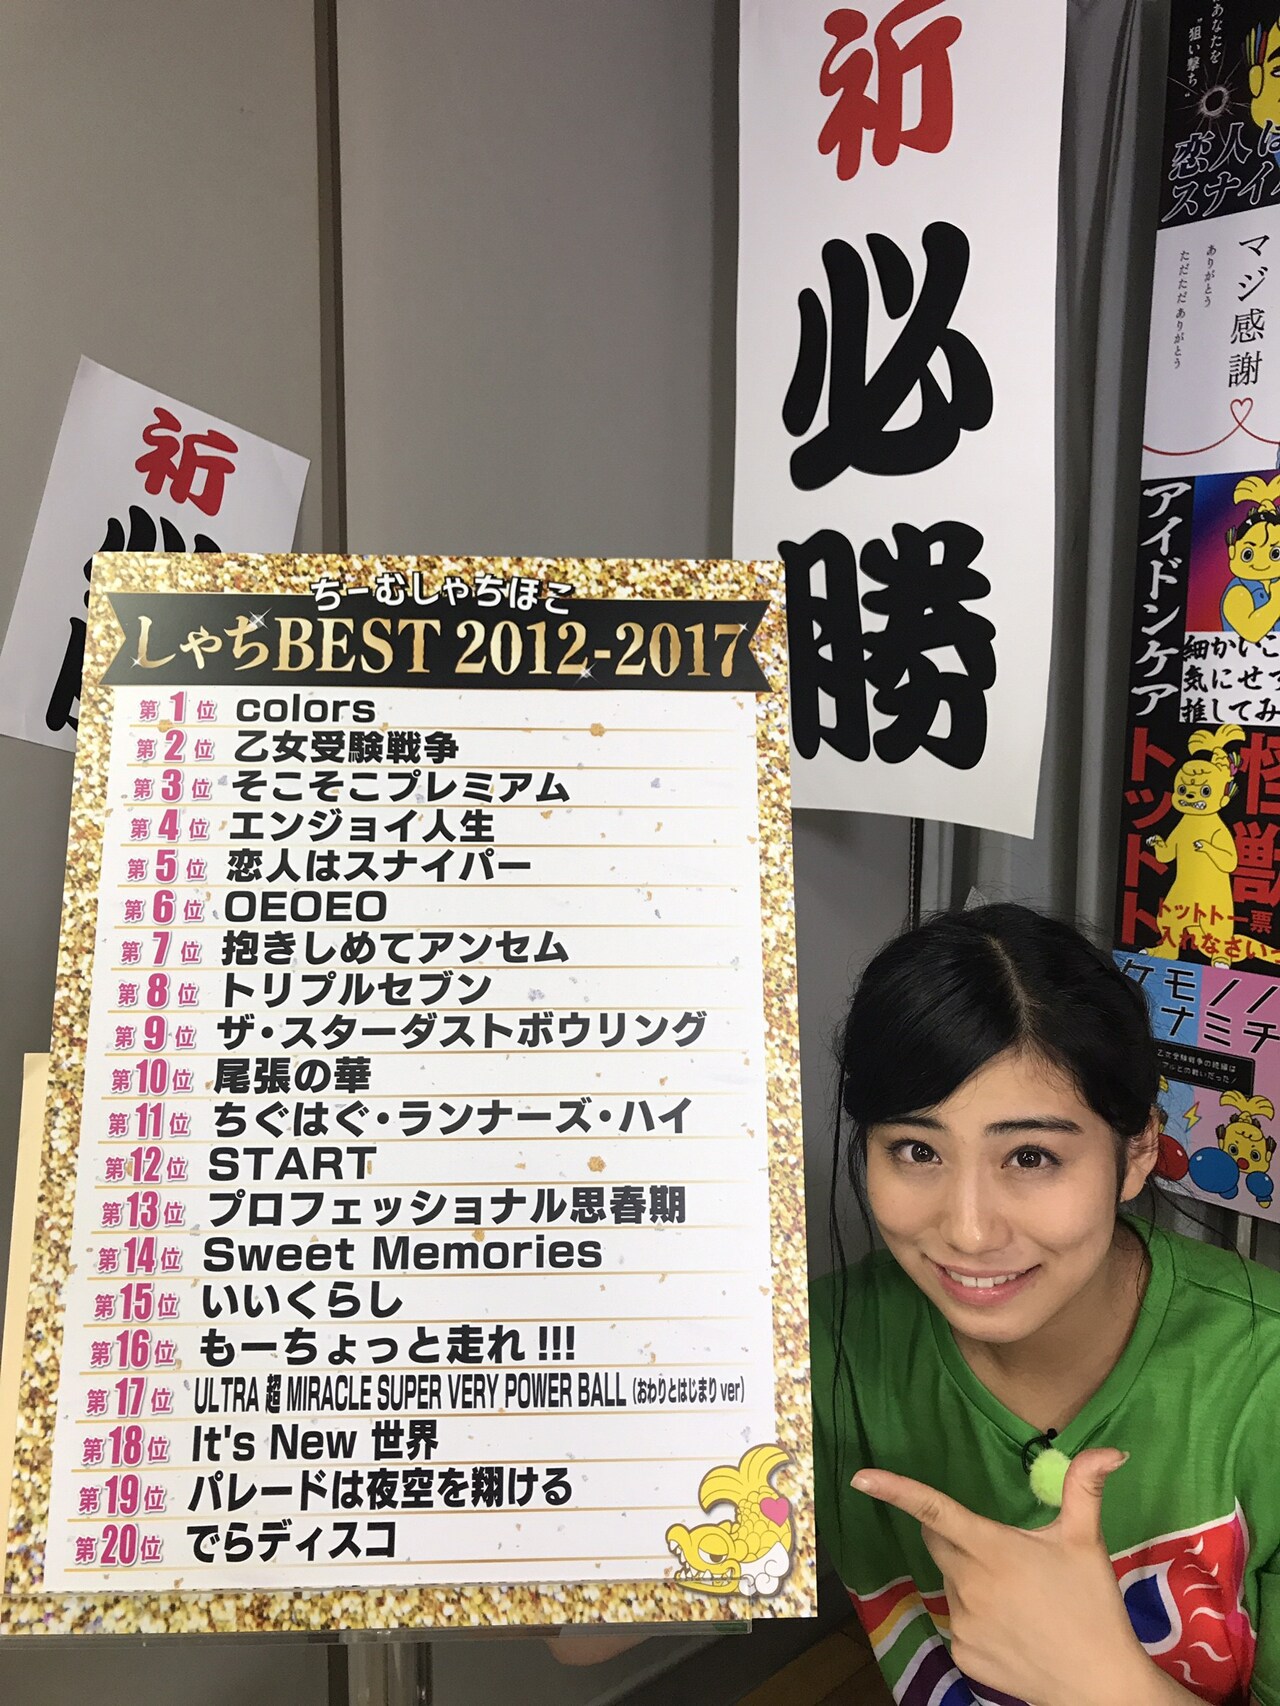 祈
必
勝
祈
ちーむしゃちほこ
しゃちBEST 2012-2017
第1位 colors
第2位 乙女受験戦争
第3位 そこそこプレミアム
第4位 エンジョイ人生
第5位 恋人はスナイパー
第6位 OEOEO
第7位 抱きしめてアンセム
第8位 トリプルセブン
第9位 ザ・スターダストボウリング
第10位 尾張の華
第11位 ちぐはぐ・ランナーズ・ハイ
第12位 START
第13位 プロフェッショナル思春期
第14位 Sweet Memories
第15位 いいくらし
第16位 もーちょっと走れ!!!
第17位 ULTRA 超 MIRACLE SUPER VERY POWER BALL (おわりとはじまり ver)
第18位 It's New 世界
第19位 パレードは夜空を翔ける
第20位 でらディスコ
あなたを
"狙い撃ち"
恋人は
スナイ
マジ感謝
ありがとう
ただただありがとう
アイドンケア
細かいこ
気にせ
推してみ
怪獣
トットト
トットト一票
入れなさい
ケモノノ
ナミチ
乙女受験戦争の続編は